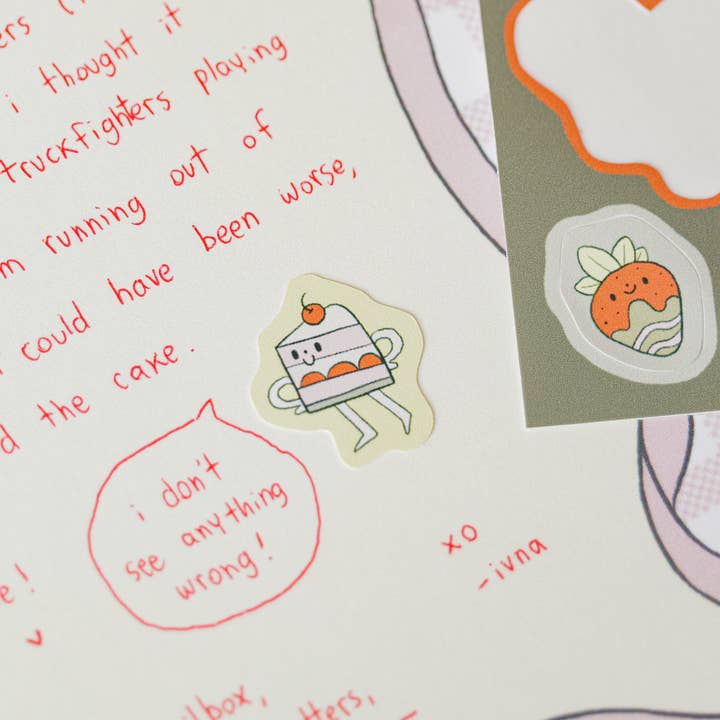 i thought it
truckfighters playing
running out of
could have been worse,
the cake.
i don't
see anything
wrong!
xo
- ivna